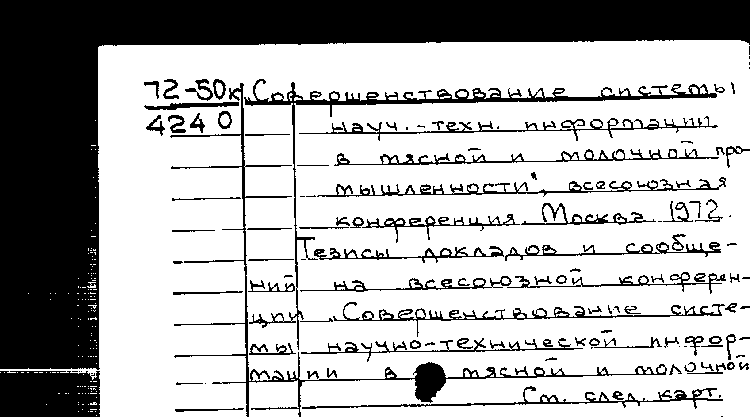 72-50к „Совершенствование системы
4240 науч.-техн. информации
в мясной и молочной про-
мышленности", всесоюзная
конференция. Москва. 1972.
Тезисы докладов и сообще-
ний на всесоюзной конферен-
ции „Совершенствование систе-
мы научно-технической инфор-
мации в мясной и молочной
См. след. карт.